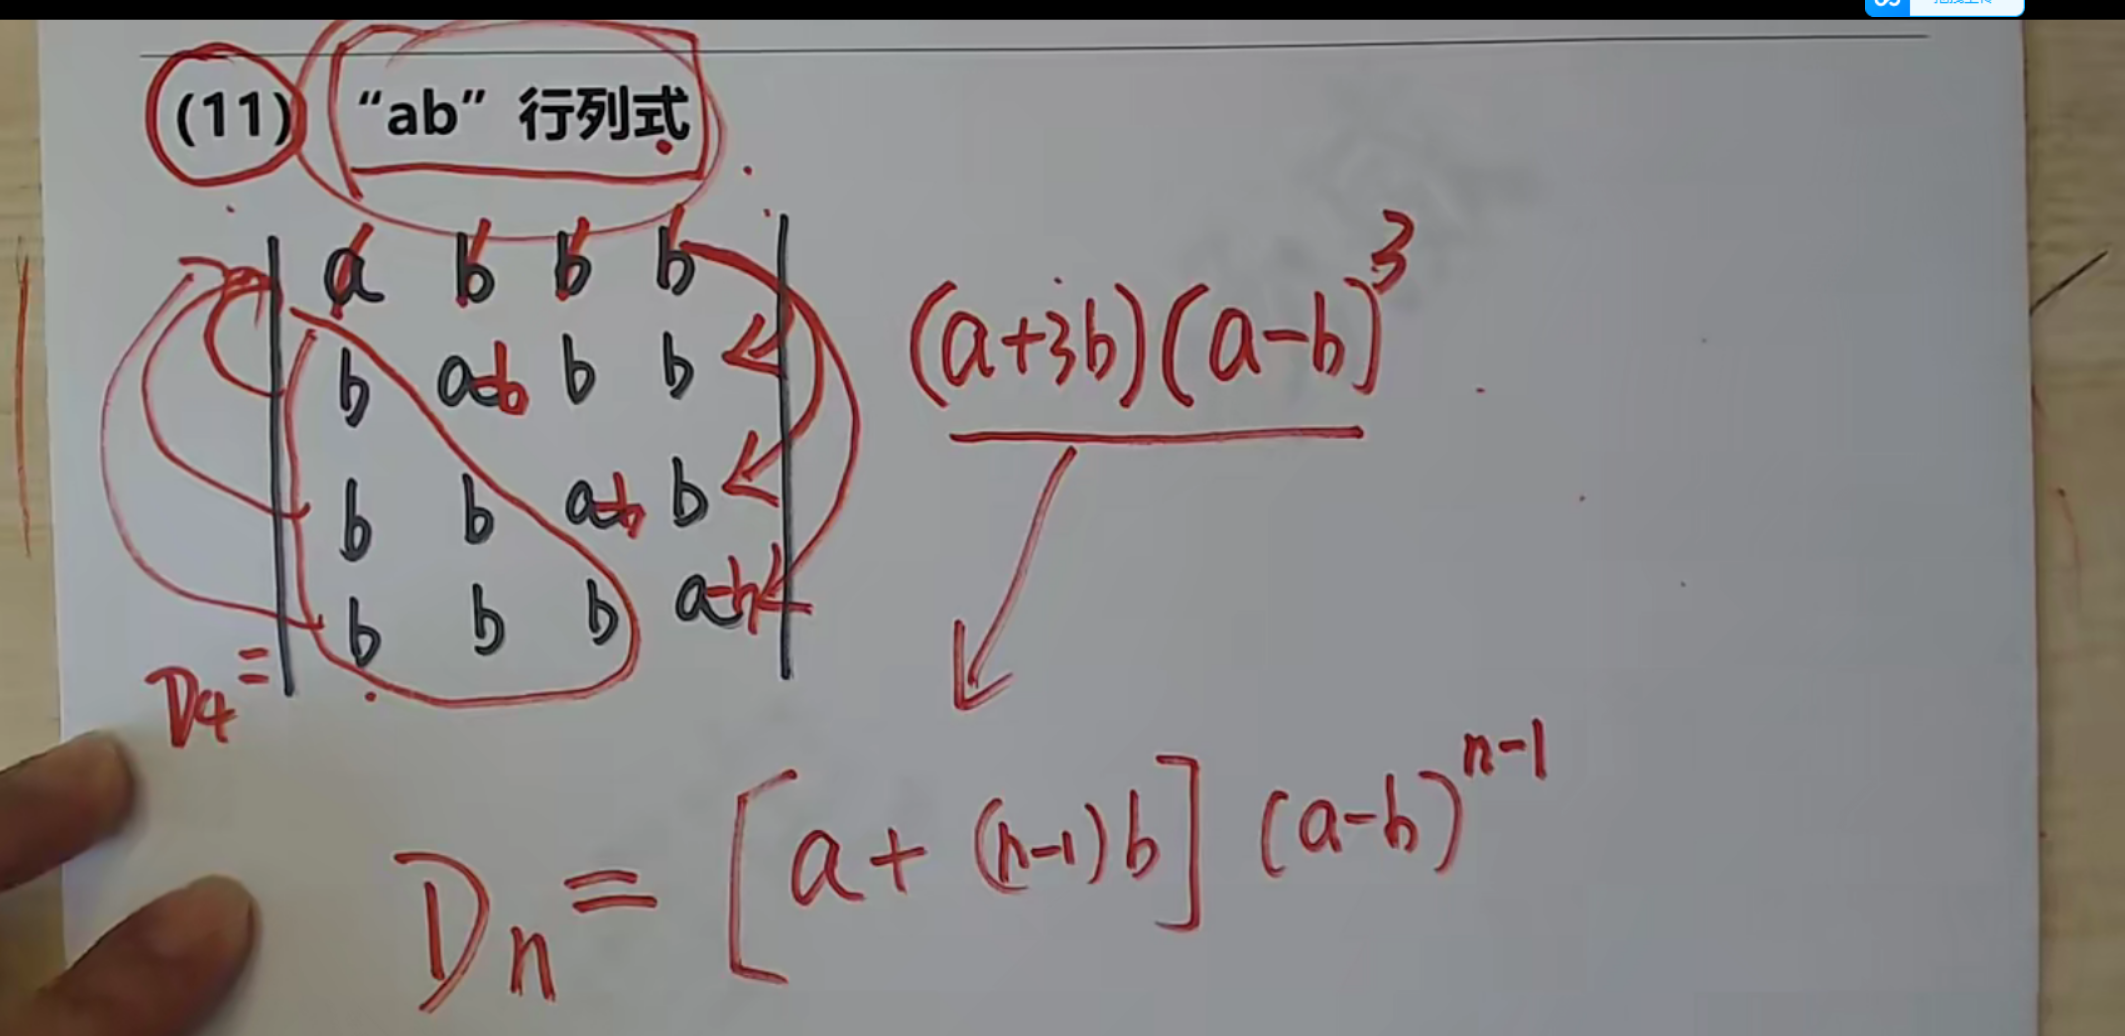 (11) “ab” 行列式
a b b b
b a-b b b
b b a-b b
b b b a-b
D4 =
(a+3b)(a-b)^3
Dn = [a + (n-1)b] (a-b)^n-1